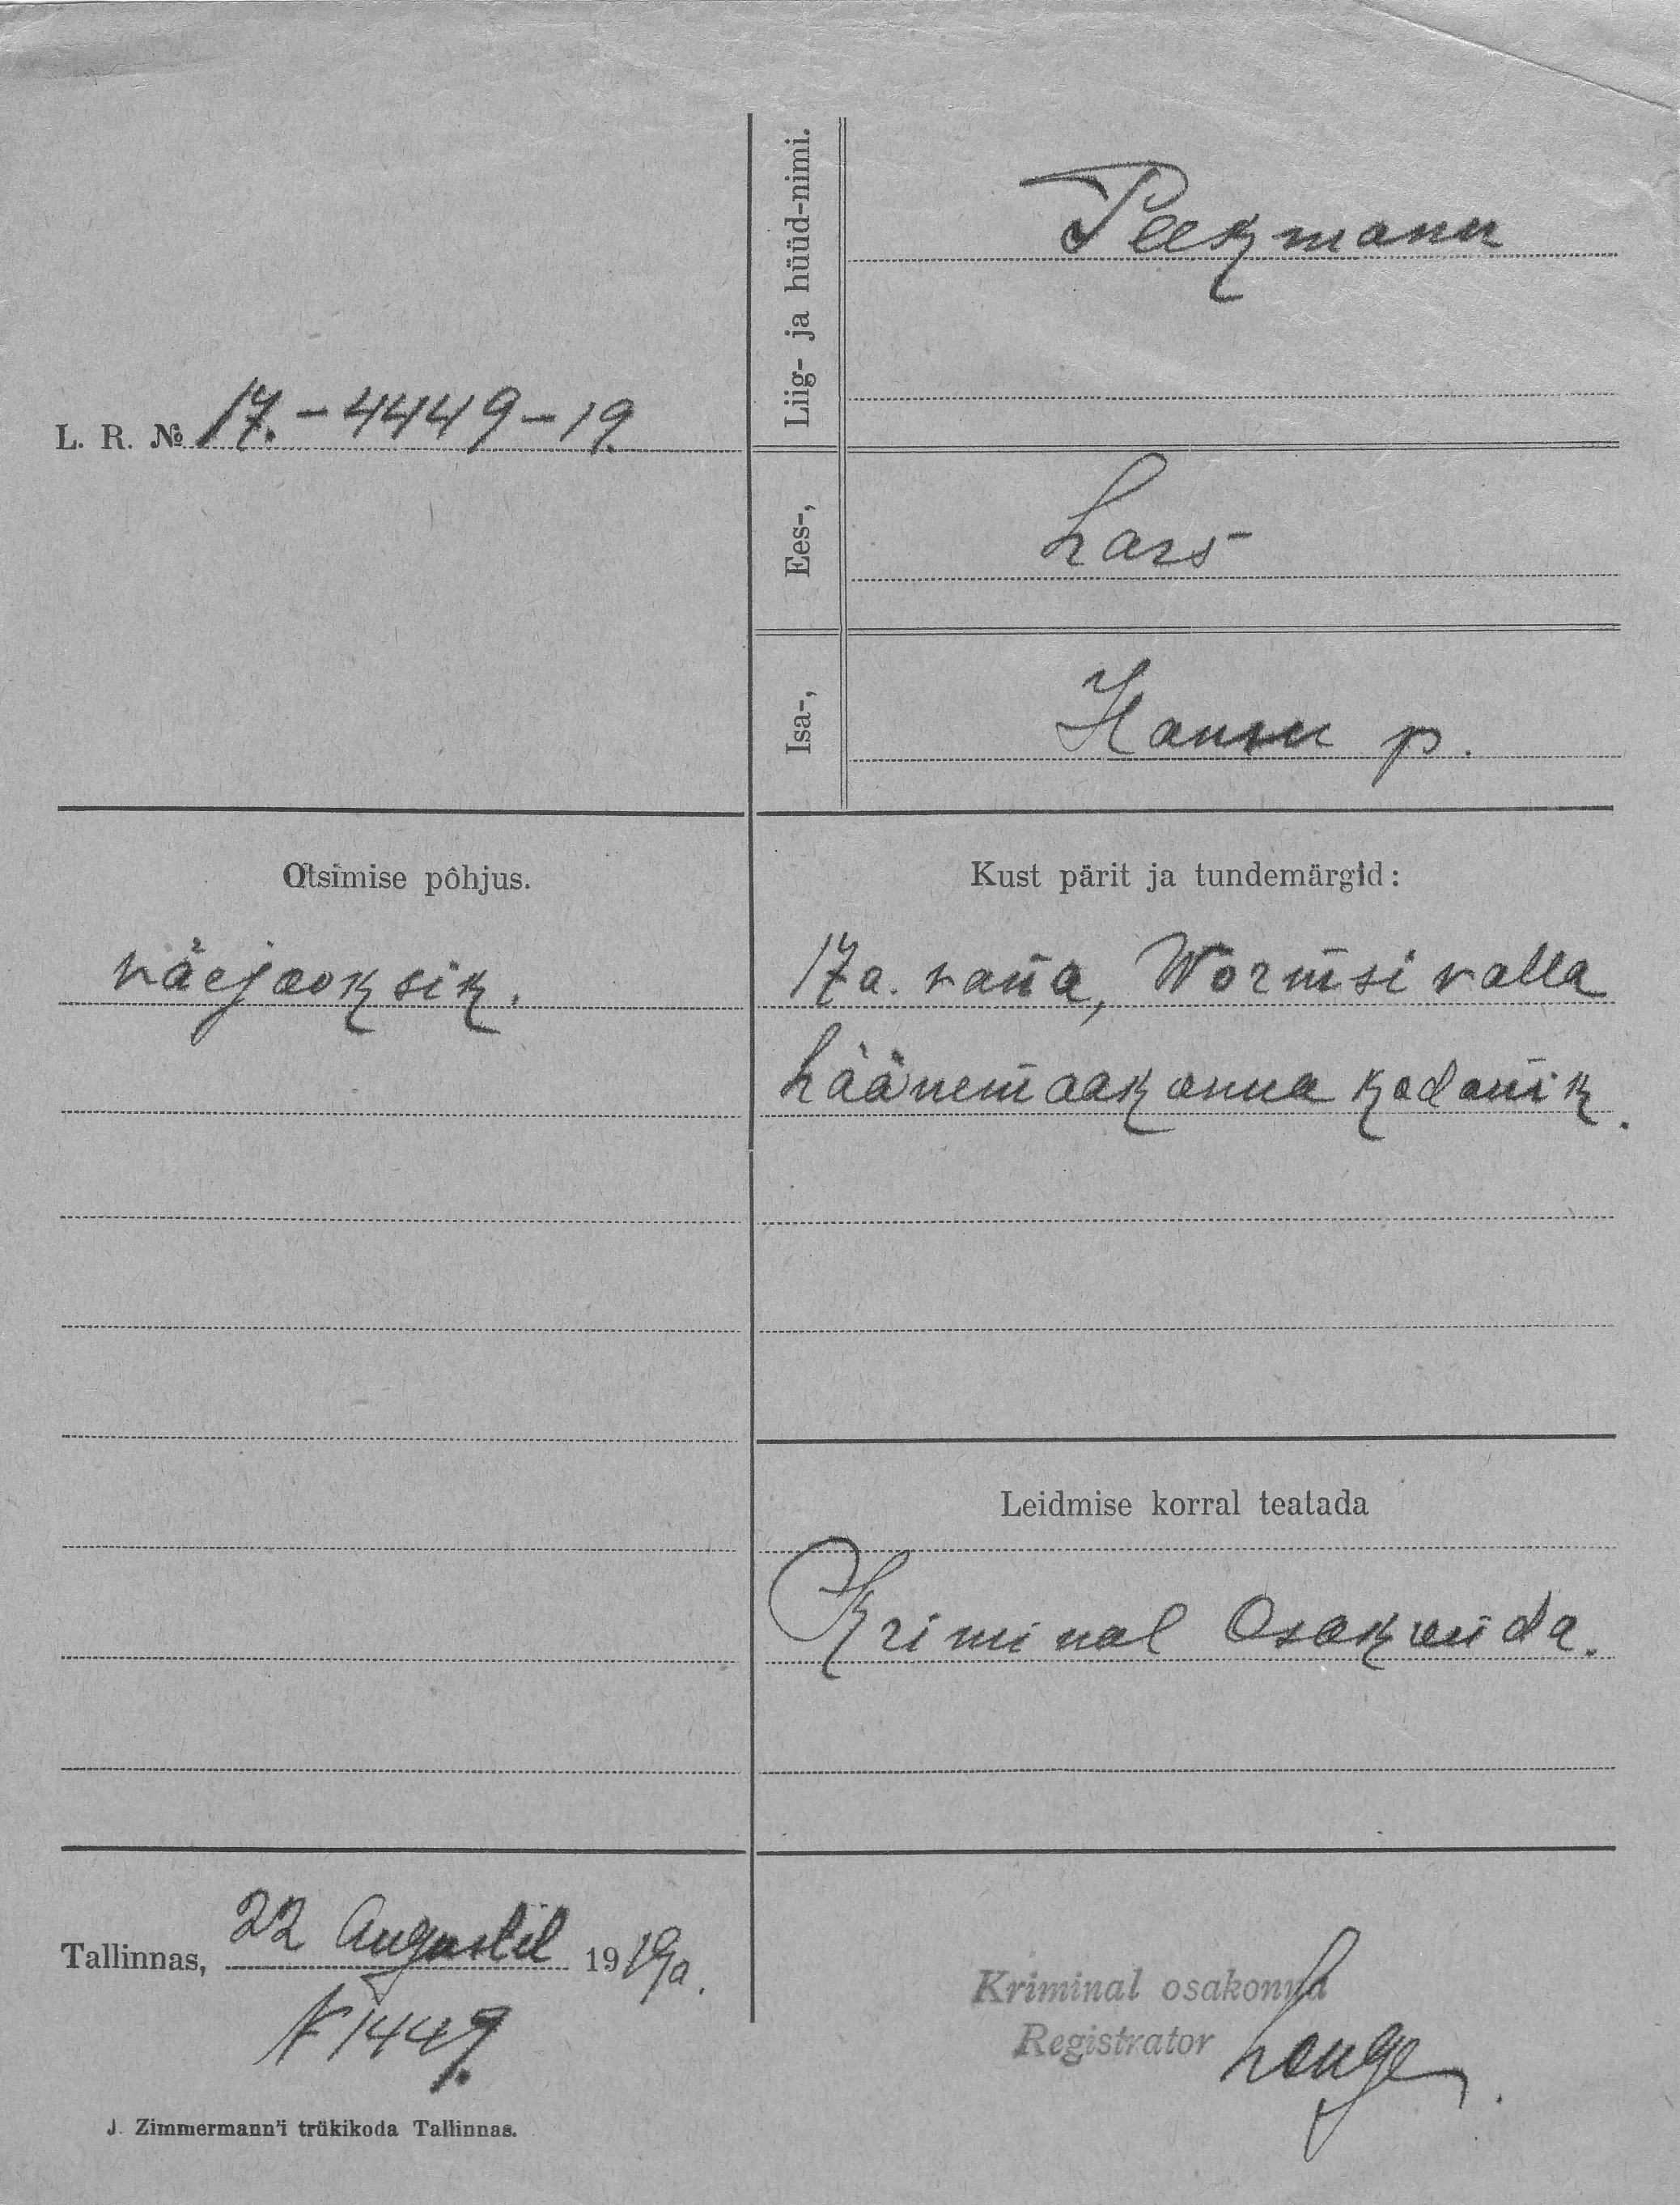 Liig- ja hüüd-nimi.
Peekmann
L. R. № 17.-4449-19.
Ees-,
Lars
Isa-,
Hansu p.
Otsimise põhjus.
väejaoksik.
Kust pärit ja tundemärgid:
17 a. vana, Wormsi valla
Läänemaakonna kodanik.
Leidmise korral teatada
Kriminal Osakonda.
Tallinnas, 22 Augustil 1919a.
№ 1449.
Kriminal osakonna
Registrator
J. Zimmermann'i trükikoda Tallinnas.